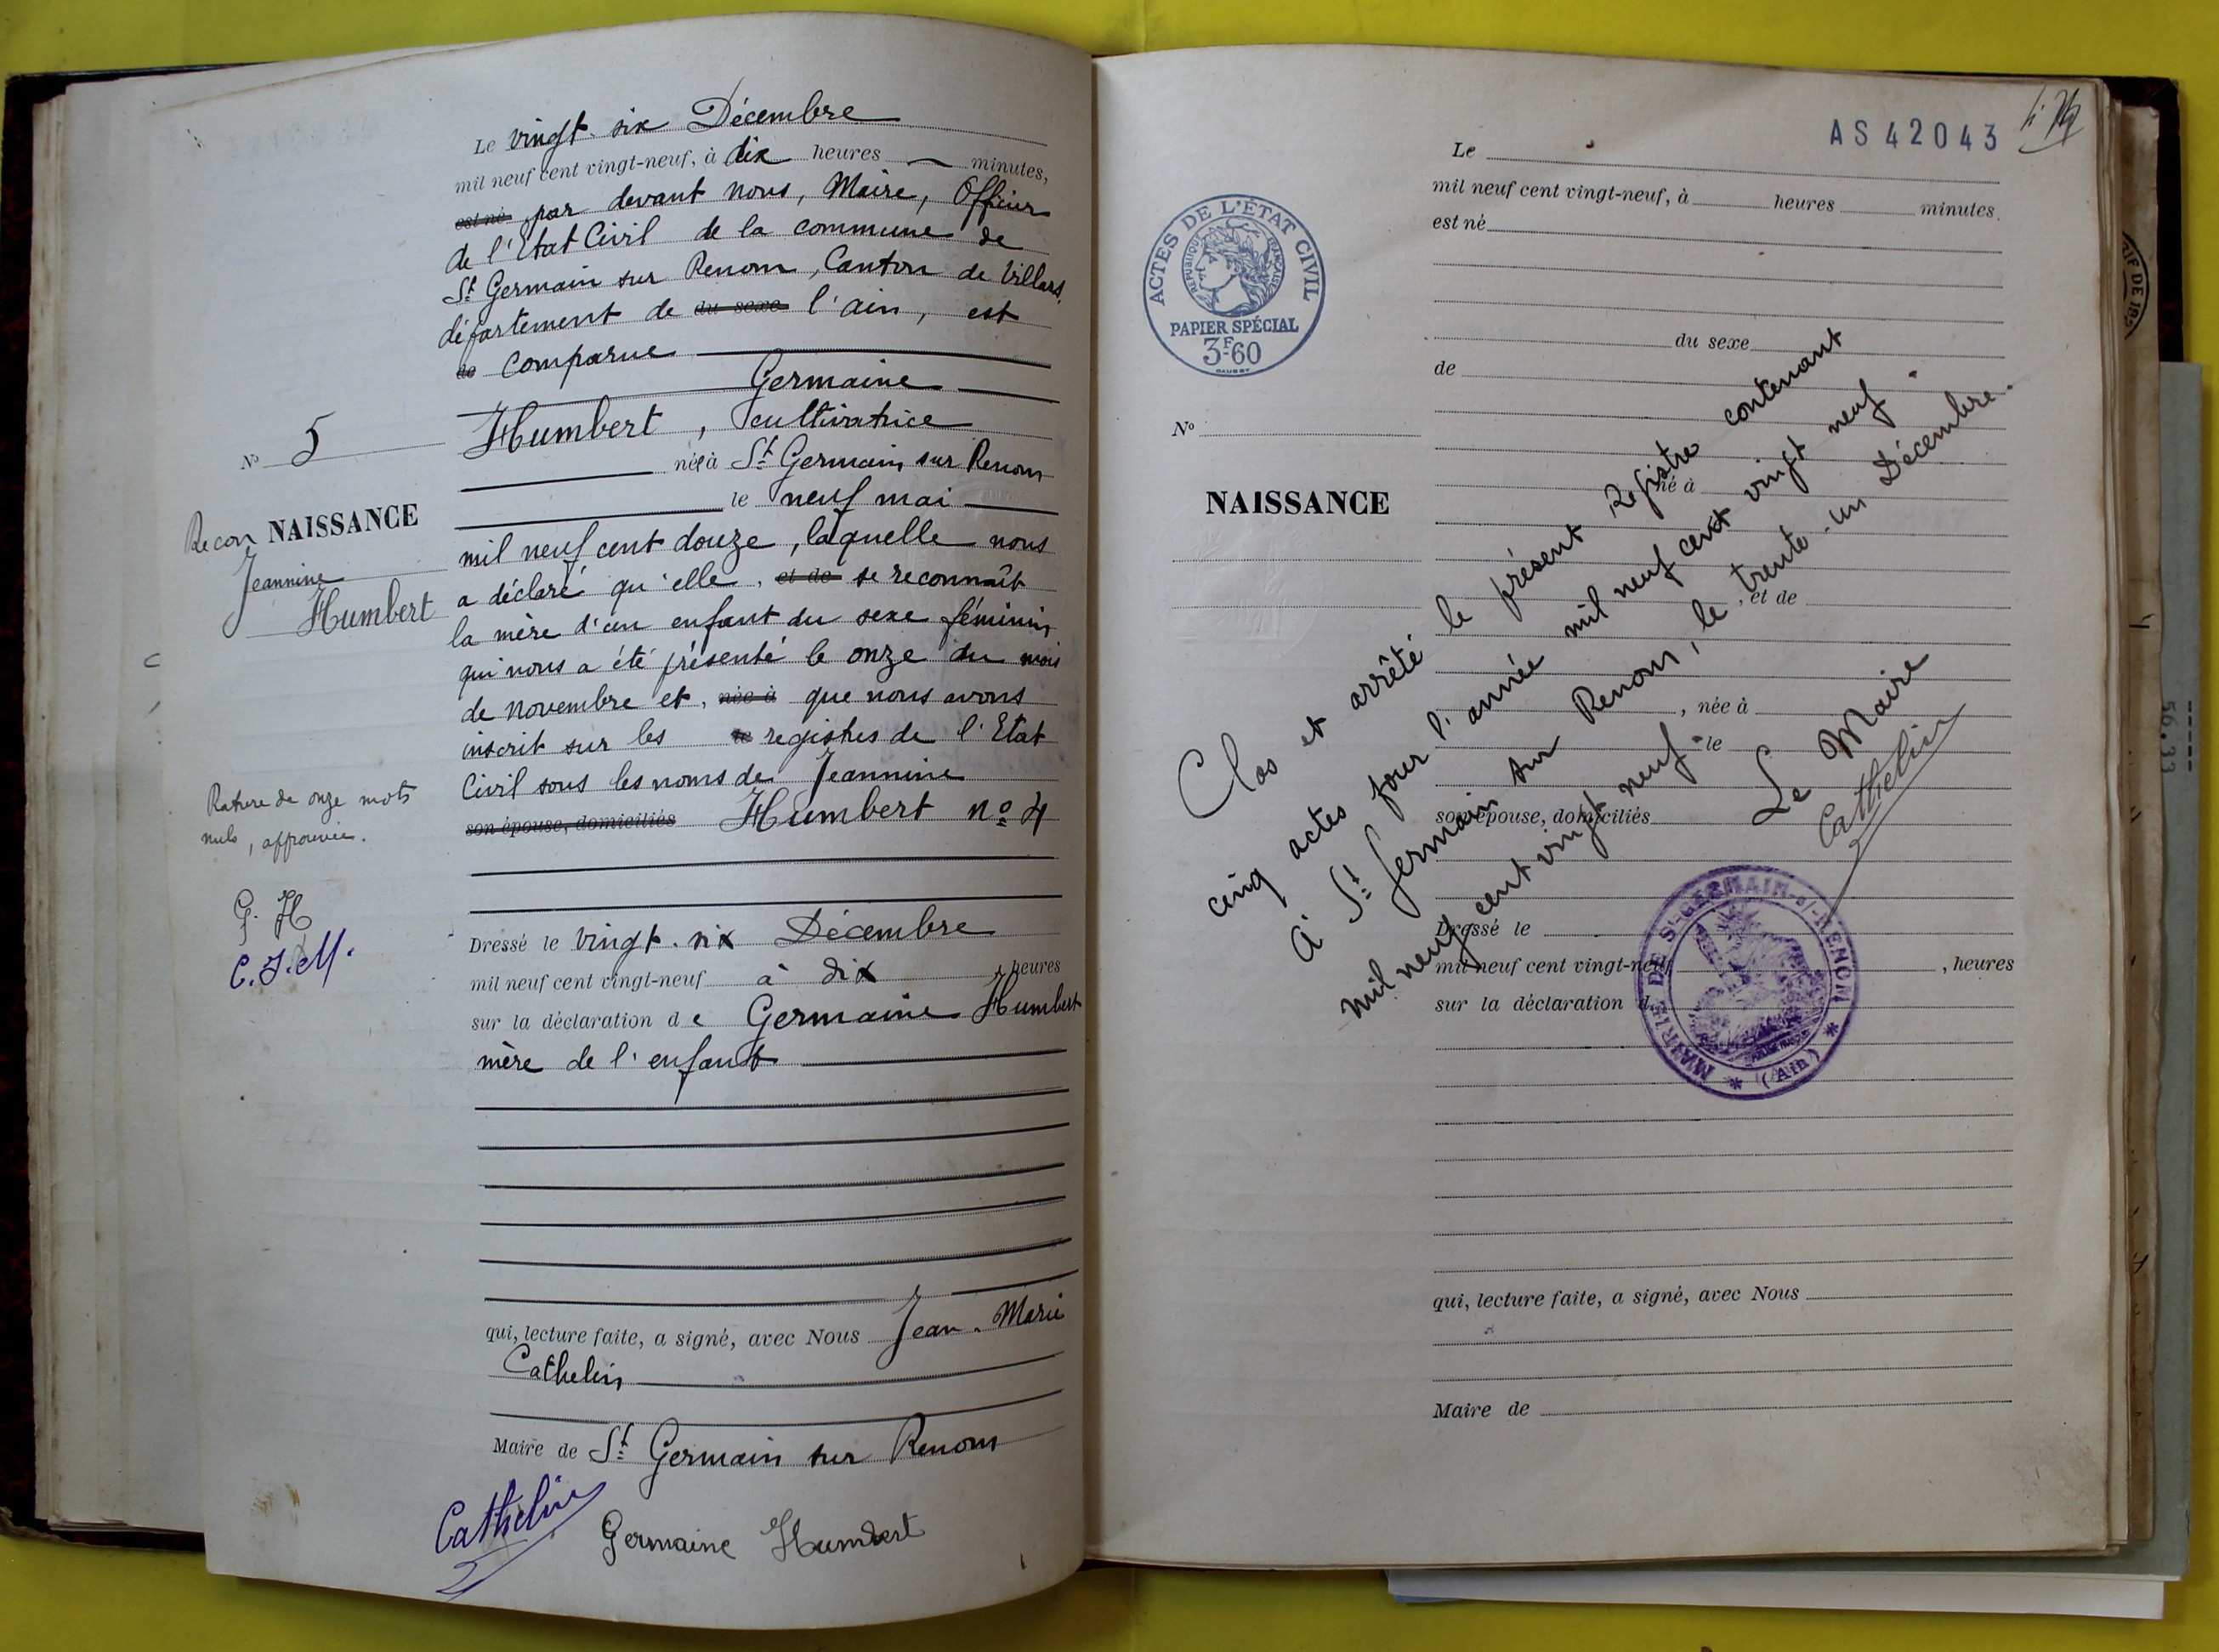 Le vingt-six Décembre
mil neuf cent vingt-neuf, à dix heures — minutes,
est né par devant nous, Maire, Officier
de l'Etat Civil de la commune de
St Germain sur Renom, Canton de Villars,
département de du sexe l'ain, est
de Comparue
Germaine
Humbert, cultivatrice
née à St Germain sur Renom
le neuf mai
mil neuf cent douze, laquelle nous
a déclaré qu'elle, et de se reconnaît
la mère d'un enfant du sexe féminin
qui nous a été présenté le onze du mois
de novembre et, née à que nous avons
inscrit sur les le registres de l'Etat
Civil sous les noms de Jeannine
son épouse, domiciliés Humbert no 4
Dressé le vingt-six Décembre
mil neuf cent vingt-neuf à dix heures
sur la déclaration de Germaine Humbert
mère de l'enfant
qui, lecture faite, a signé, avec Nous Jean-Marie
Cathelin
Maire de St Germain sur Renom
Cathelin
Germaine Humbert
No 5
Recon NAISSANCE
Jeannine
Humbert
Rature de onze mots
nuls, approuvée.
G. H
C. J. M.
AS 42043
ACTES DE L'ÉTAT CIVIL
RÉPUBLIQUE FRANÇAISE
PAPIER SPÉCIAL
3F60
No
NAISSANCE
Le
mil neuf cent vingt-neuf, à heures minutes.
est né
du sexe
de
né à
, et de
, née à
le
son épouse, domiciliés
Dressé le
mil neuf cent vingt-neuf , heures
sur la déclaration d
qui, lecture faite, a signé, avec Nous
Maire de
Clos et arrêté le présent Registre contenant
cinq actes pour l'année mil neuf cent vingt neuf.
à St Germain sur Renom, le trente-un Décembre.
mil neuf cent vingt neuf.
Le Maire
Cathelin
MAIRIE DE St-GERMAIN-s/-RENON
(Ain)